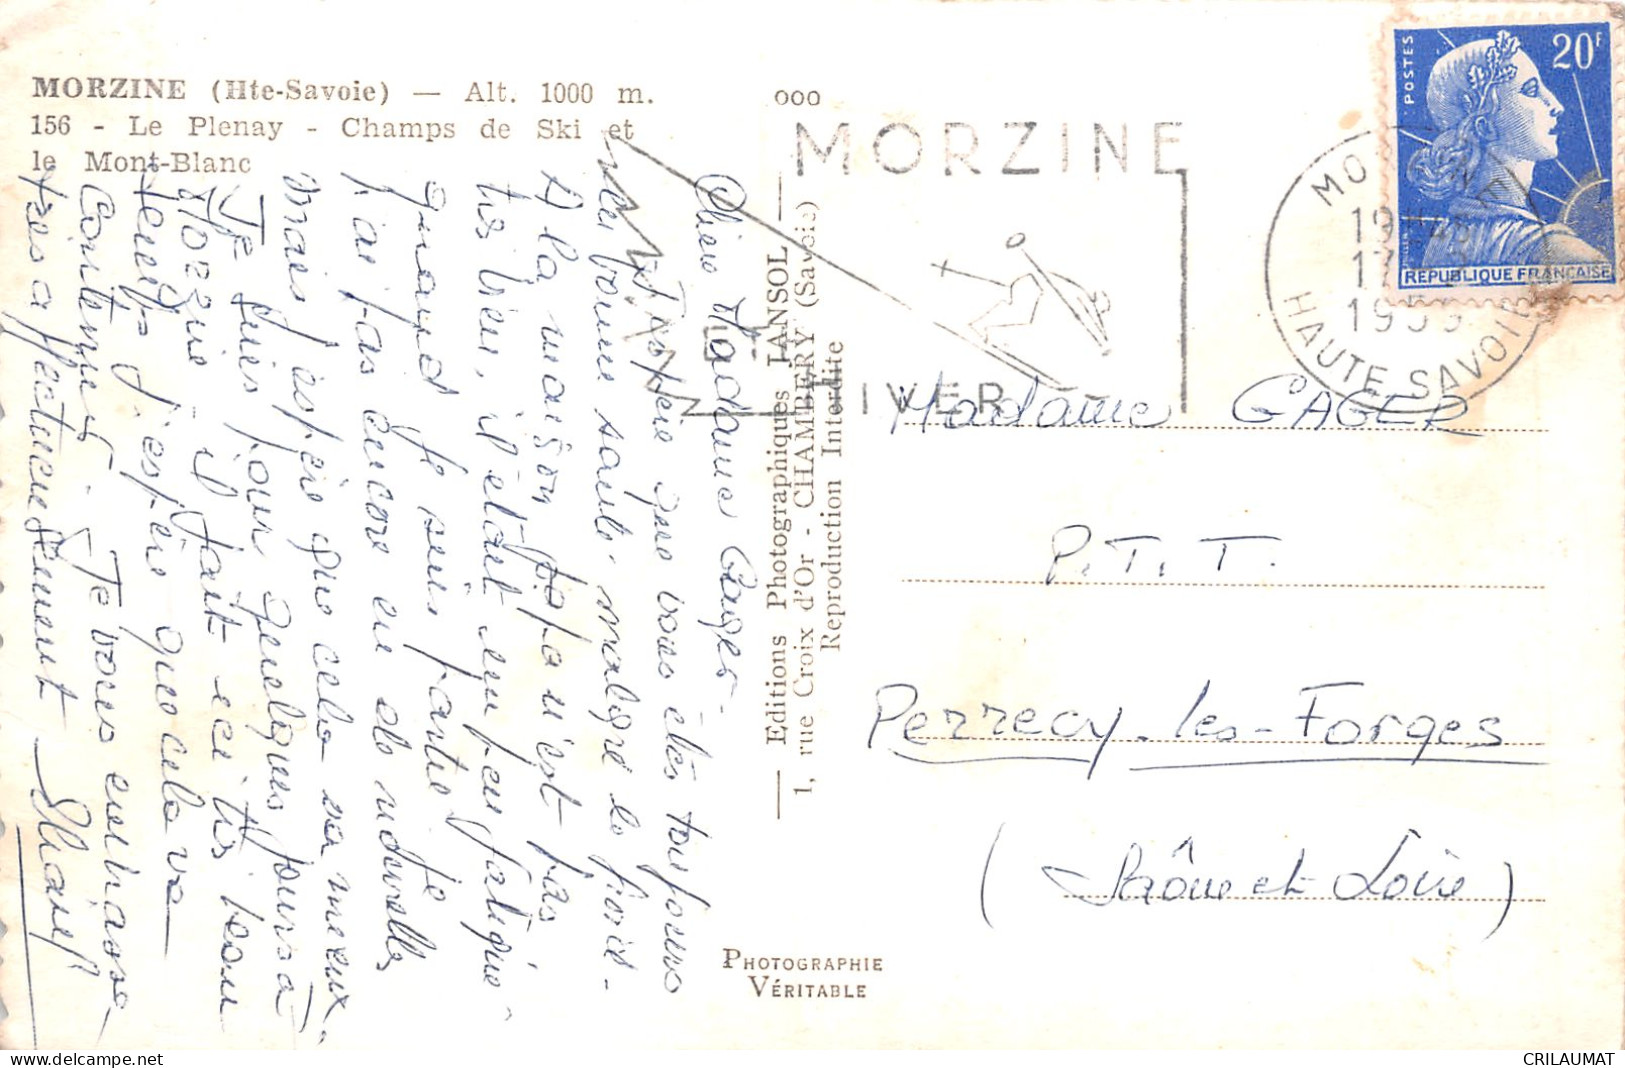 MORZINE (Hte-Savoie) — Alt. 1000 m.
156 - Le Plenay - Champs de Ski et
le Mont-Blanc
Chère Madame Gager -
J'espère que vous êtes toujours
en bonne santé malgré le froid -
A la maison papa n'est pas
très bien, il était un peu fatigué
quand je suis partie je
n'ai pas encore eu de nouvelles
mais j'espère que cela va mieux.
Je suis pour quelques jours à
Morzine - il fait ici très beau
temps j'espère que cela va
continuer - Je vous embrasse
très affectueusement
Editions Photographiques JANSOL
1, rue Croix d'Or - CHAMBERY (Savoie)
Reproduction Interdite
PHOTOGRAPHIE
VÉRITABLE
ooo
MORZINE
HIVER
MORZINE
HAUTE-SAVOIE
POSTES
20F
REPUBLIQUE FRANÇAISE
Madame GAGER
P.T.T.
Perrecy-les-Forges
(Saône et Loire)
www.delcampe.net
CRILAUMAT